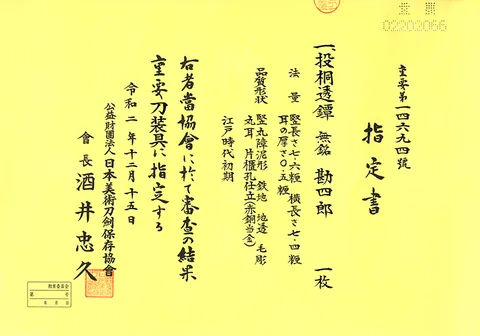 02202066
重要第一四六九四號
指定書
一、投桐透鐔 無銘 勘四郎 一枚
法量 竪長さ七・六糎 横長さ七・四糎
耳の厚さ〇・五糎
品質形状 竪丸障泥形 鉄地 地透 毛彫
丸耳 片櫃孔仕立(赤銅当金)
江戸時代初期
右者當協會に於て審査の結果
重要刀装具に指定する
令和二年十二月十五日
公益財団法人日本美術刀剣保存協會
會長 酒井忠久
第 号
年 月 日